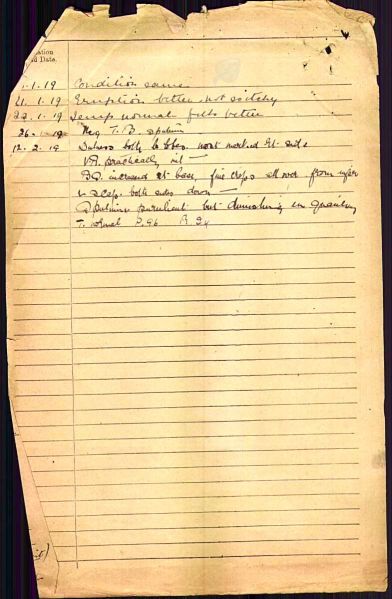 ation
d Date.
1.19 Condition same
21.1.19 Eruption better, not itchy
23.1.19 Temp normal feels better
26.1.19 Neg T.B. sputum
12.2.19 Dulness both bases most marked Rt side
V.R. practically nil —
increased Rt base, fine creps all over from
scap. both sides down —
Sputum purulent but diminishing in quantity
T. normal P. 96 R 24